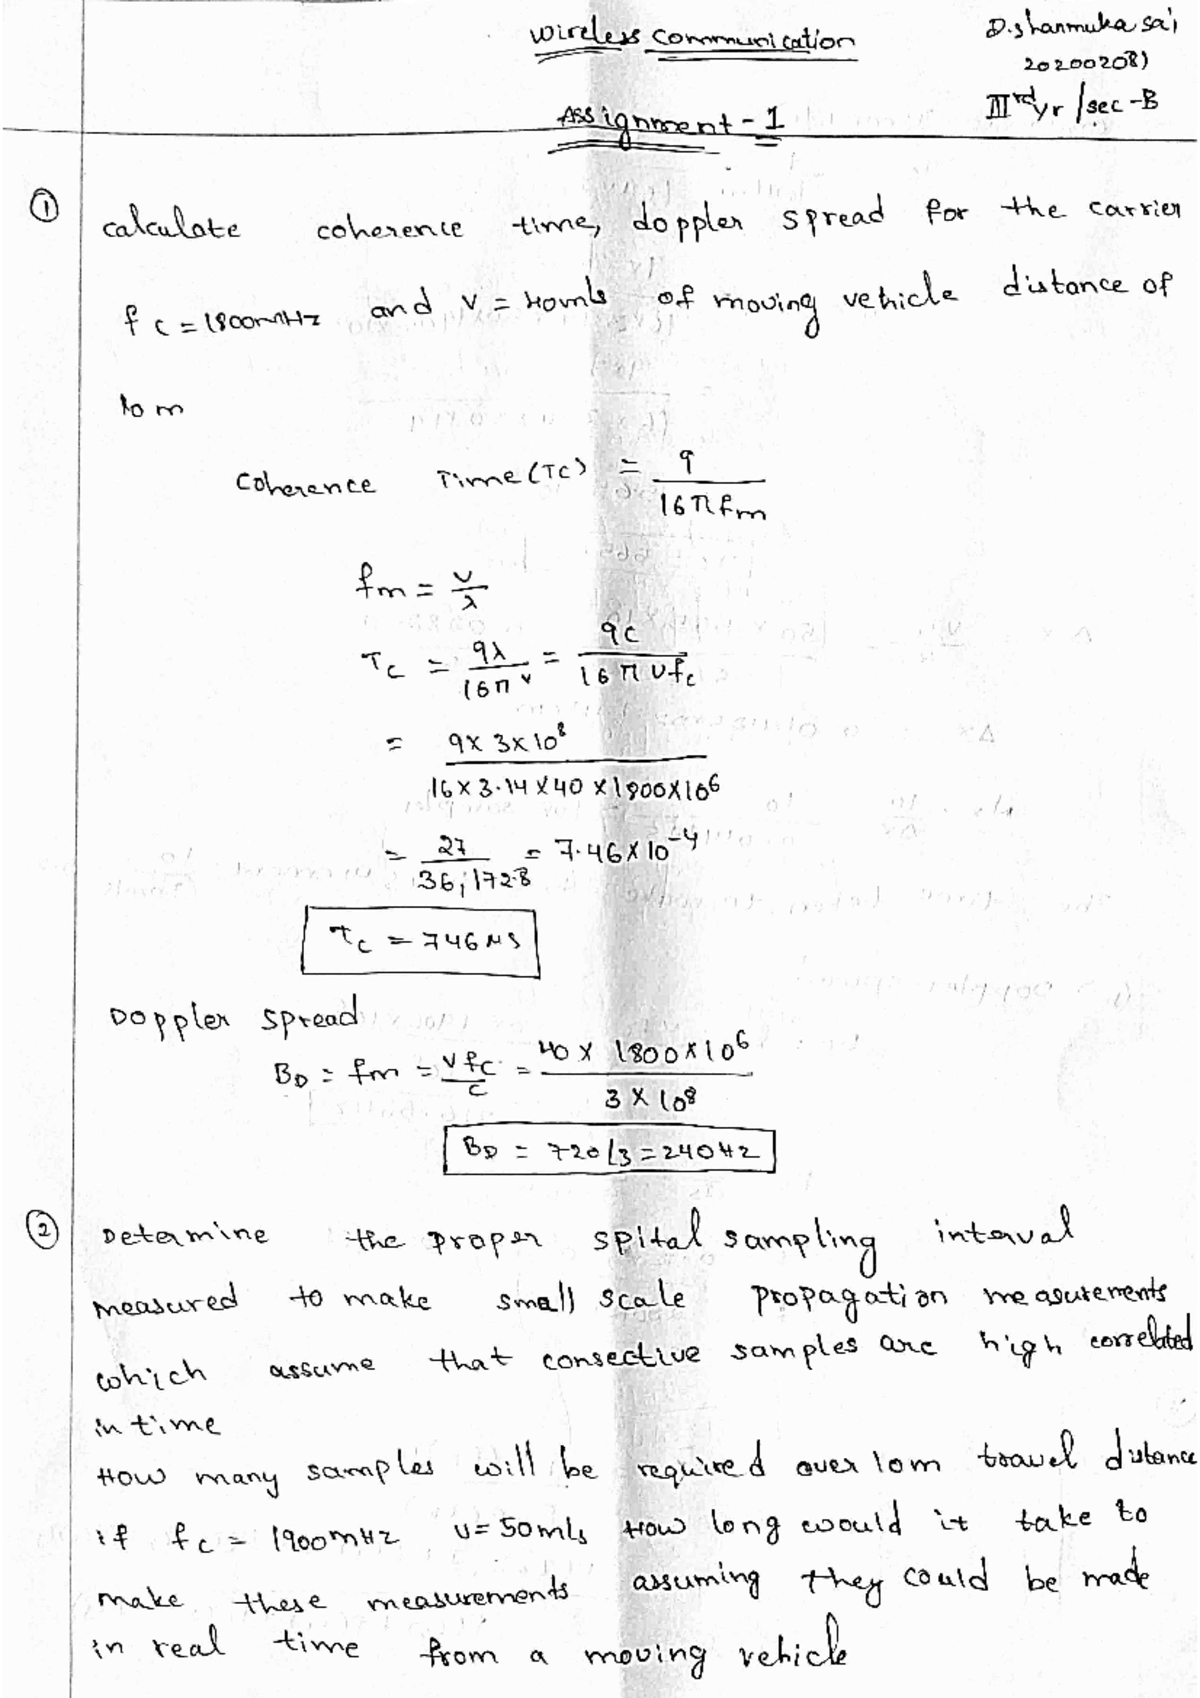 wireless communication
D.shanmuka sai
202002081
IIIrd yr /sec-B
Assignment-1
① calculate coherence time, doppler spread for the carrier
fc=1800MHz and v=40m/s of moving vehicle distance of
10m
Coherence Time(Tc) = 9/16πfm
fm = v/λ
Tc = 9λ/16πv = 9c/16πvfc
= 9×3×10⁸/16×3.14×40×1800×10⁶
= 27/36,1728 = 7.46×10⁻⁴
Tc = 746μs
Doppler spread
BD = fm = vfc/c = 40×1800×10⁶/3×10⁸
BD = 720/3=240Hz
② Determine the proper spital sampling interval
measured to make small scale propagation measurements
which assume that consective samples are high correlated
in time
How many samples will be required over 10m travel distance
if fc = 1900MHz v=50m/s How long would it take to
make these measurements assuming they could be made
in real time from a moving vehicle